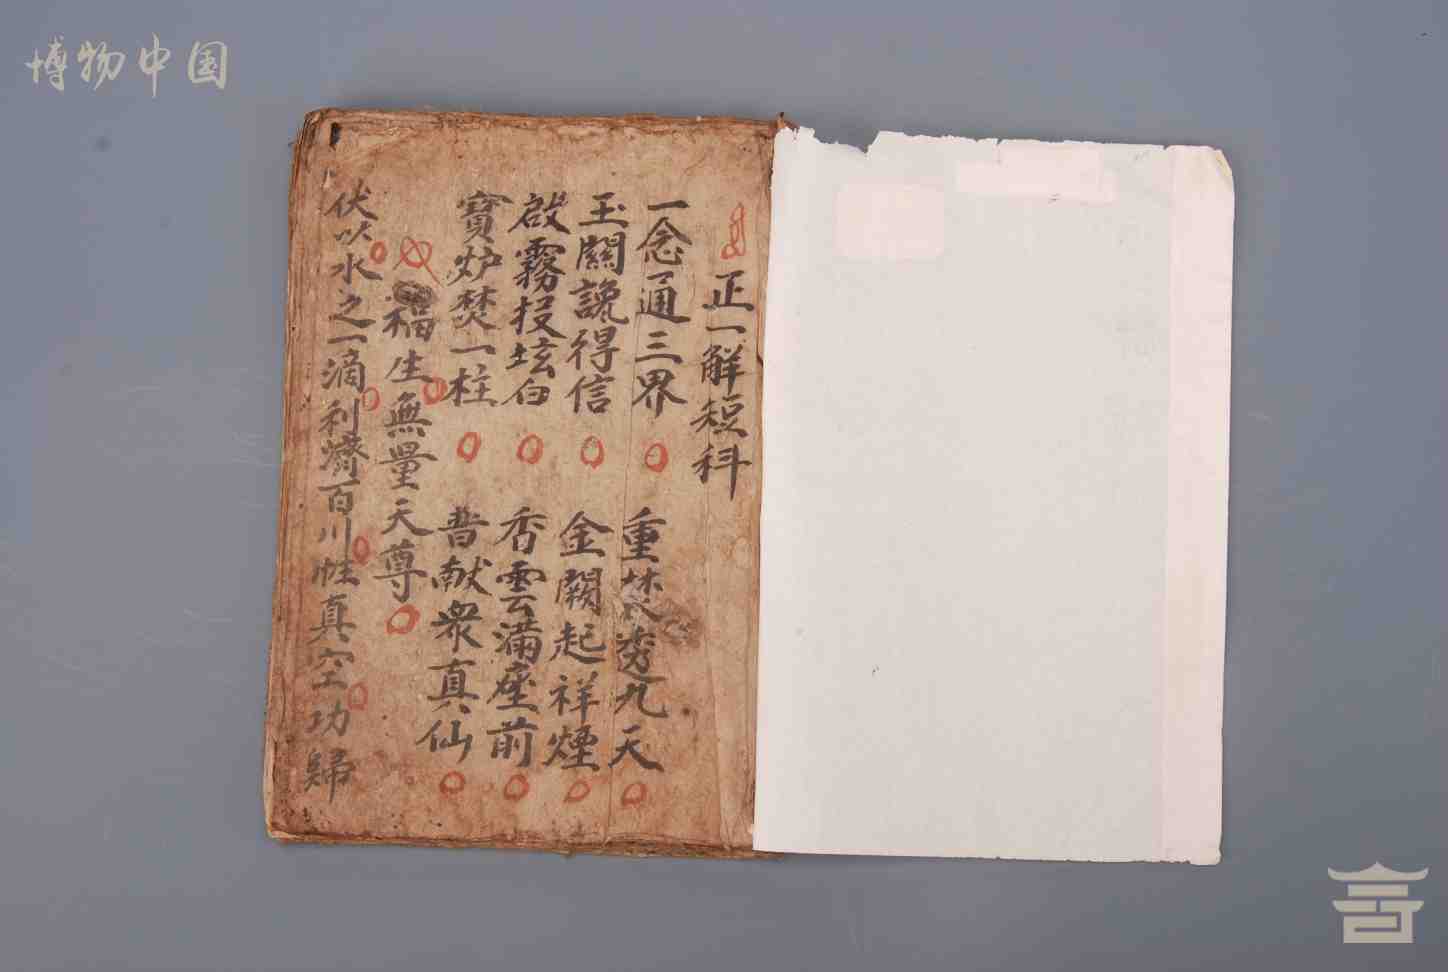 博物中国
正一解短科
一念通三界 重林透九天
玉關讒得信 金闕起祥煙
啟霧投垓白 香雲滿座前
寳炉焚一柱 普献衆真仙
福生無量天尊
伏以水之一滴利濟百川惟真空功歸